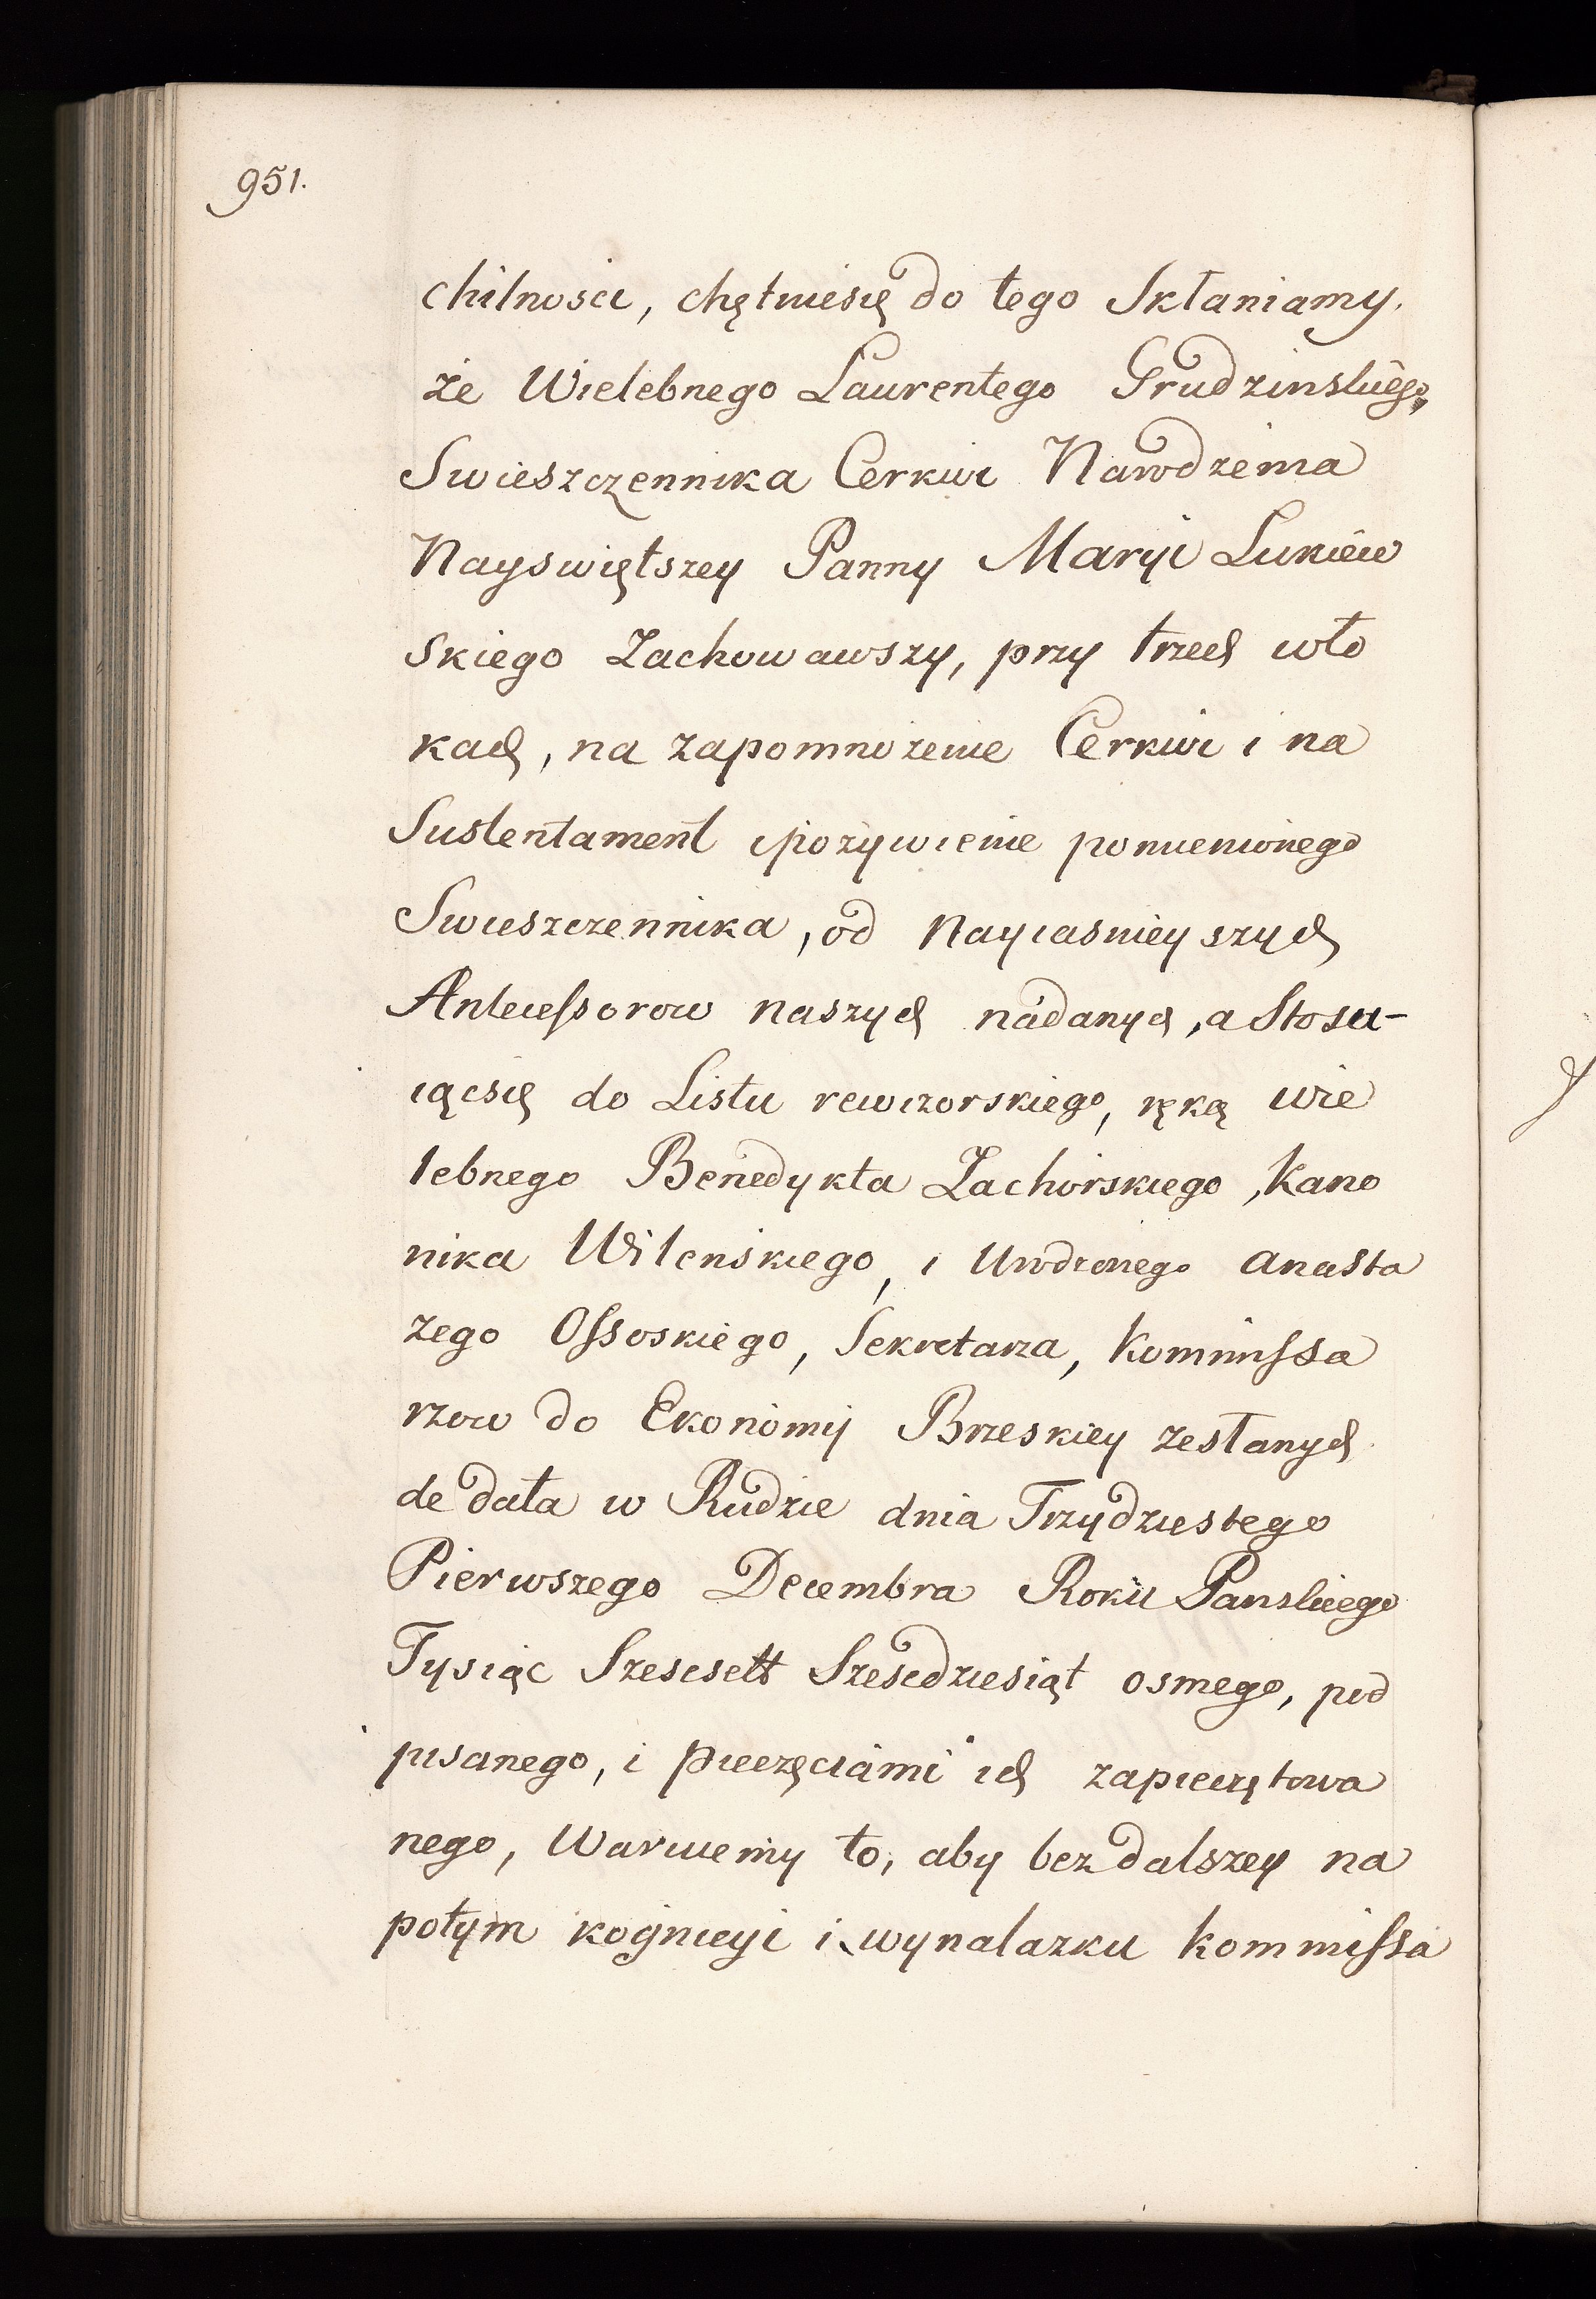 951.
chilnosci, chętniesię do tego Skłaniamy.
że Wielebnego Laurentego Grudzinskiego,
Swieszczennika Cerkwi Narodzenia
Nayswiętszey Panny Maryi Lukiew
skiego Zachowawszy, przy trzech wło
kach, na zapomnożenie Cerkwi i na
Sustentament ipożywienie pomienionego
Swieszczennika, od Nayiasnieyszych
Antecessorow naszych nadanych, a Stosu-
iącsię do Listu rewizorskiego, ręką wie
lebnego Benedykta Zachorskiego, Kano
nika Wilenskiego, i Urodzonego Anasta
zego Ossoskiego, Sekretarza, Kommissa
rzow do Ekonomij Brzeskiey zesłanych
de data w Rudzie dnia Trzydziestego
Pierwszego Decembra Roku Panskiego
Tysiąc Szescsett Szescdziesiąt osmego, pod
pisanego, i pieczęciami ich zapieczętowa
nego, Waruiemy to, aby bez dalszey na
potym kognicyi i wynalazku kommissa